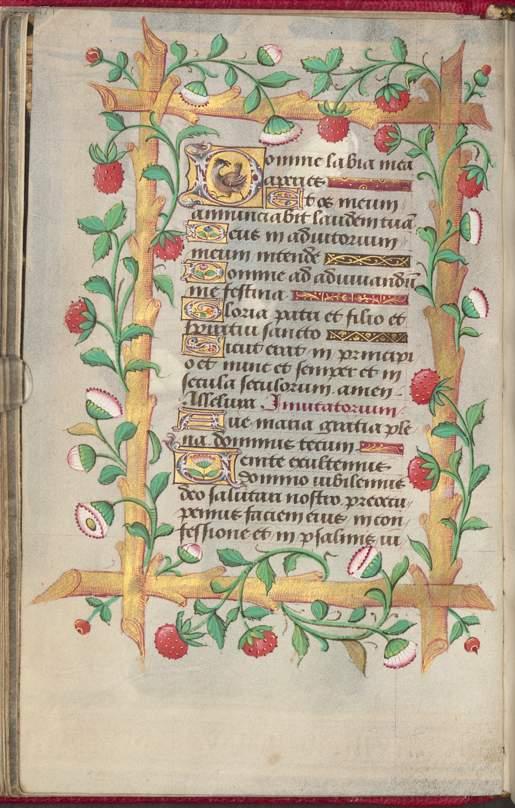 Domine labia mea
aperies
Et os meum
annunciabit laudem tuā
Deus in adiutorium
meum intende
Domine ad adiuuandū
me festina
Gloria patri et filio et
spiritui sancto
Sicut erat in principi
o et nunc et semper et in
secula seculorum. amen.
Alleluya. Inuitatorium.
Aue maria gratia ple
na dominus tecum
Uenite exultemus
domino iubilemus
deo salutari nostro preoccu
pemus faciem eius in con
fessione et in psalmis iu